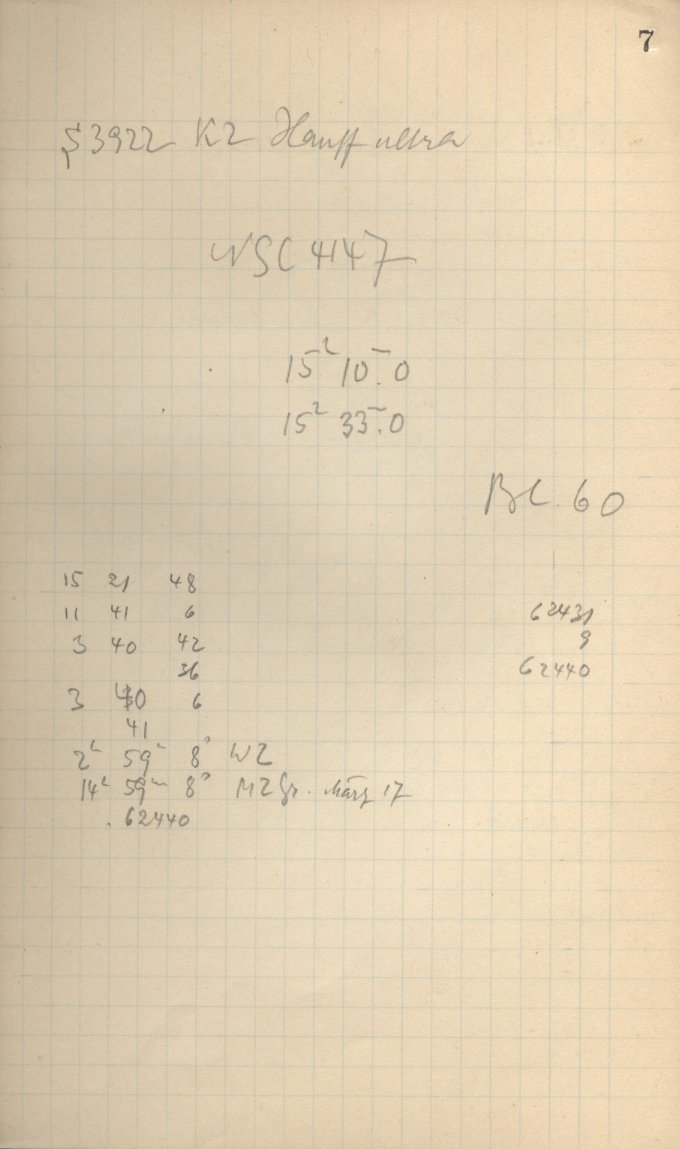 7
S 3922 K2 Hauff ultra
NGC 4147
15ʰ 10ᵐ.0
15ʰ 33ᵐ.0
Bl. 60
15 21 48
11 41 6
3 40 42
36
3 40 6
41
2ʰ 59ᵐ 8ˢ WZ
14ʰ 59ᵐ 8ˢ MZGr. März 17
.62440
62431
9
62440